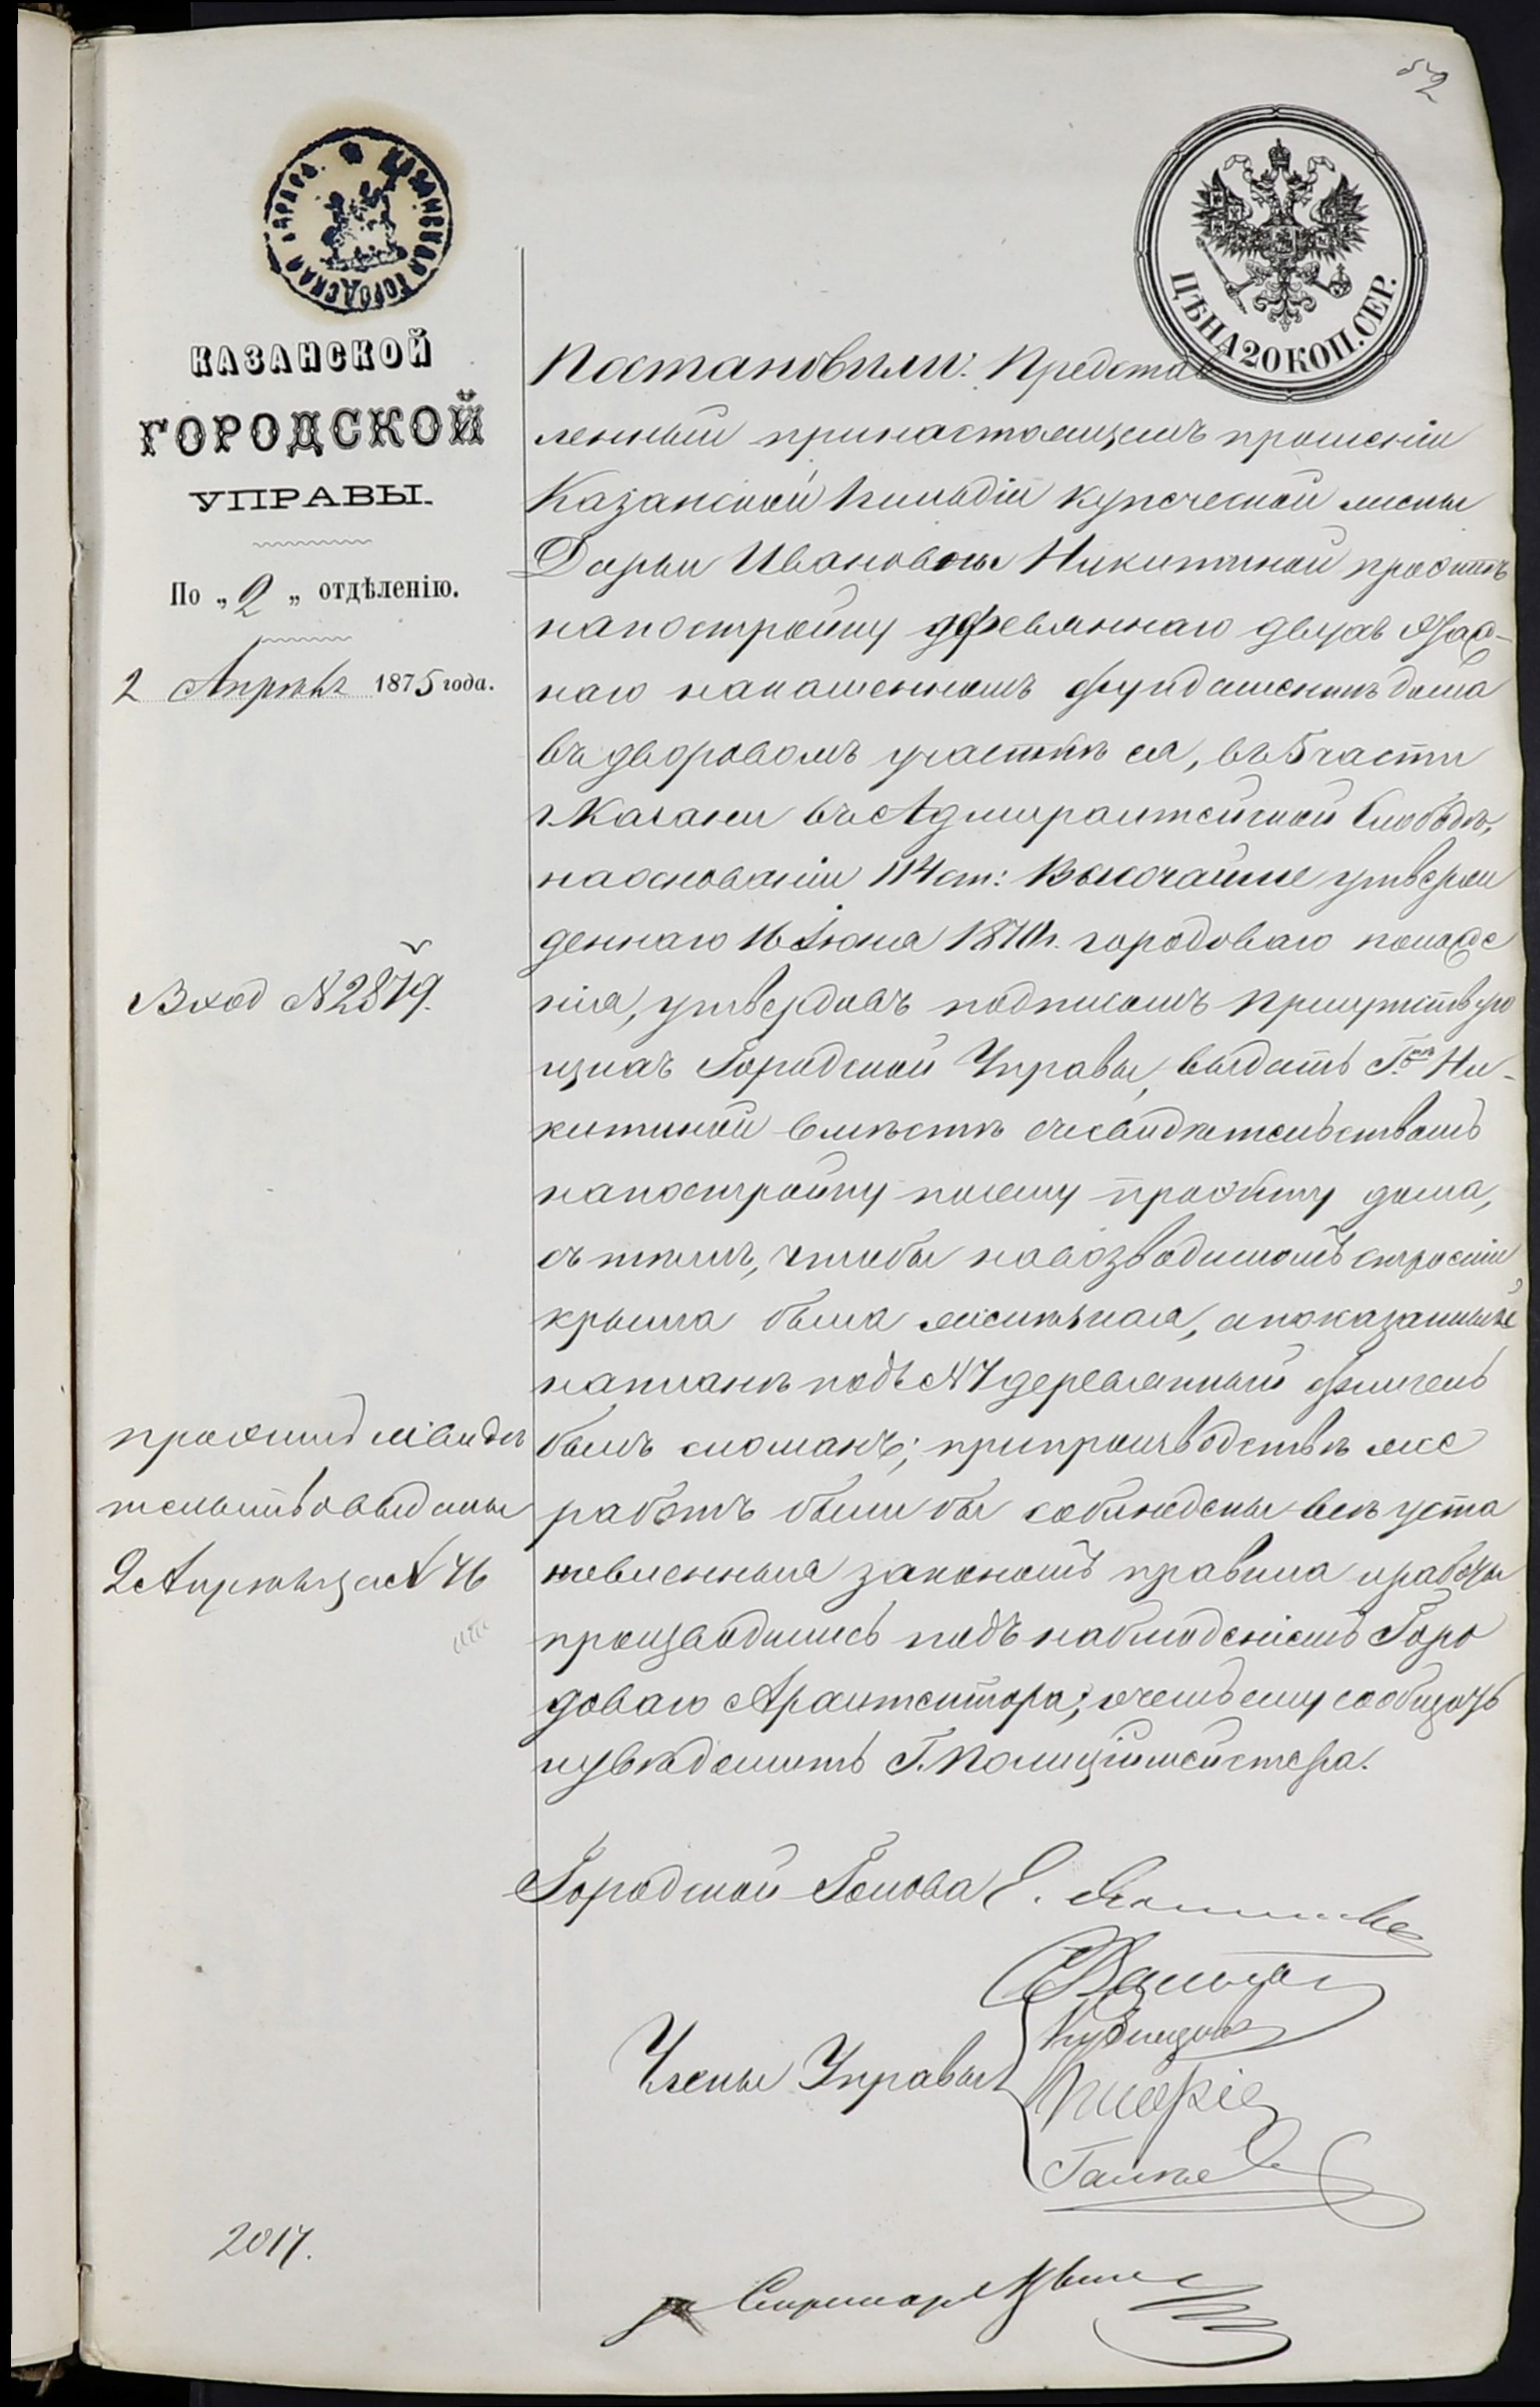 52
КАЗАНСКАЯ ГОРОДСКАЯ УПРАВА
ЦѢНА 20 КОП. СЕР.
КАЗАНСКОЙ
ГОРОДСКОЙ
УПРАВЫ.
По „2„ отдѣленію.
2 Апрѣля 1875 года.
Вход № 2879.
проэктъ и свидѣ
тельство выданы
2 Апрѣля за № 76
2017.
Постановили: Представ
ленный принастоящемъ прошеніи
Казанской гильдіи купеческой жены
Дарьи Ивановны Никитиной проэктъ
напостройку деревяннаго двухъ этаж-
наго накаменномъ фундаментѣ дома
въ дворовомъ участкѣ ея, въ 5 части
г. Казани въ Адмиралтейской Слободѣ,
наоснованіи 114 ст: Высочайше утверж
деннаго 16 Іюня 1870 г. городоваго положе
нія, утвердивъ подписомъ присутствую
щихъ Городской Управы, выдать Г-жѣ Ни-
китиной вмѣстѣ съ свидѣтельствомъ
напостройку посему проэкту дома,
съ тѣмъ, чтобы навозводимомъ строеніи
крыша была желѣзная, а показанный
напланѣ подъ № 7 деревянный флигель
былъ сломанъ; припроизводствѣ же
работъ были бы соблюдены всѣ уста
новленныя закономъ правила и работы
производились подъ наблюденіемъ Горо
доваго Архитектора; о чемъ ему сообщить
и увѣдомить Г. Полиціймейстера.
Городской Голова Е.
Члены Управы
за Секретаря